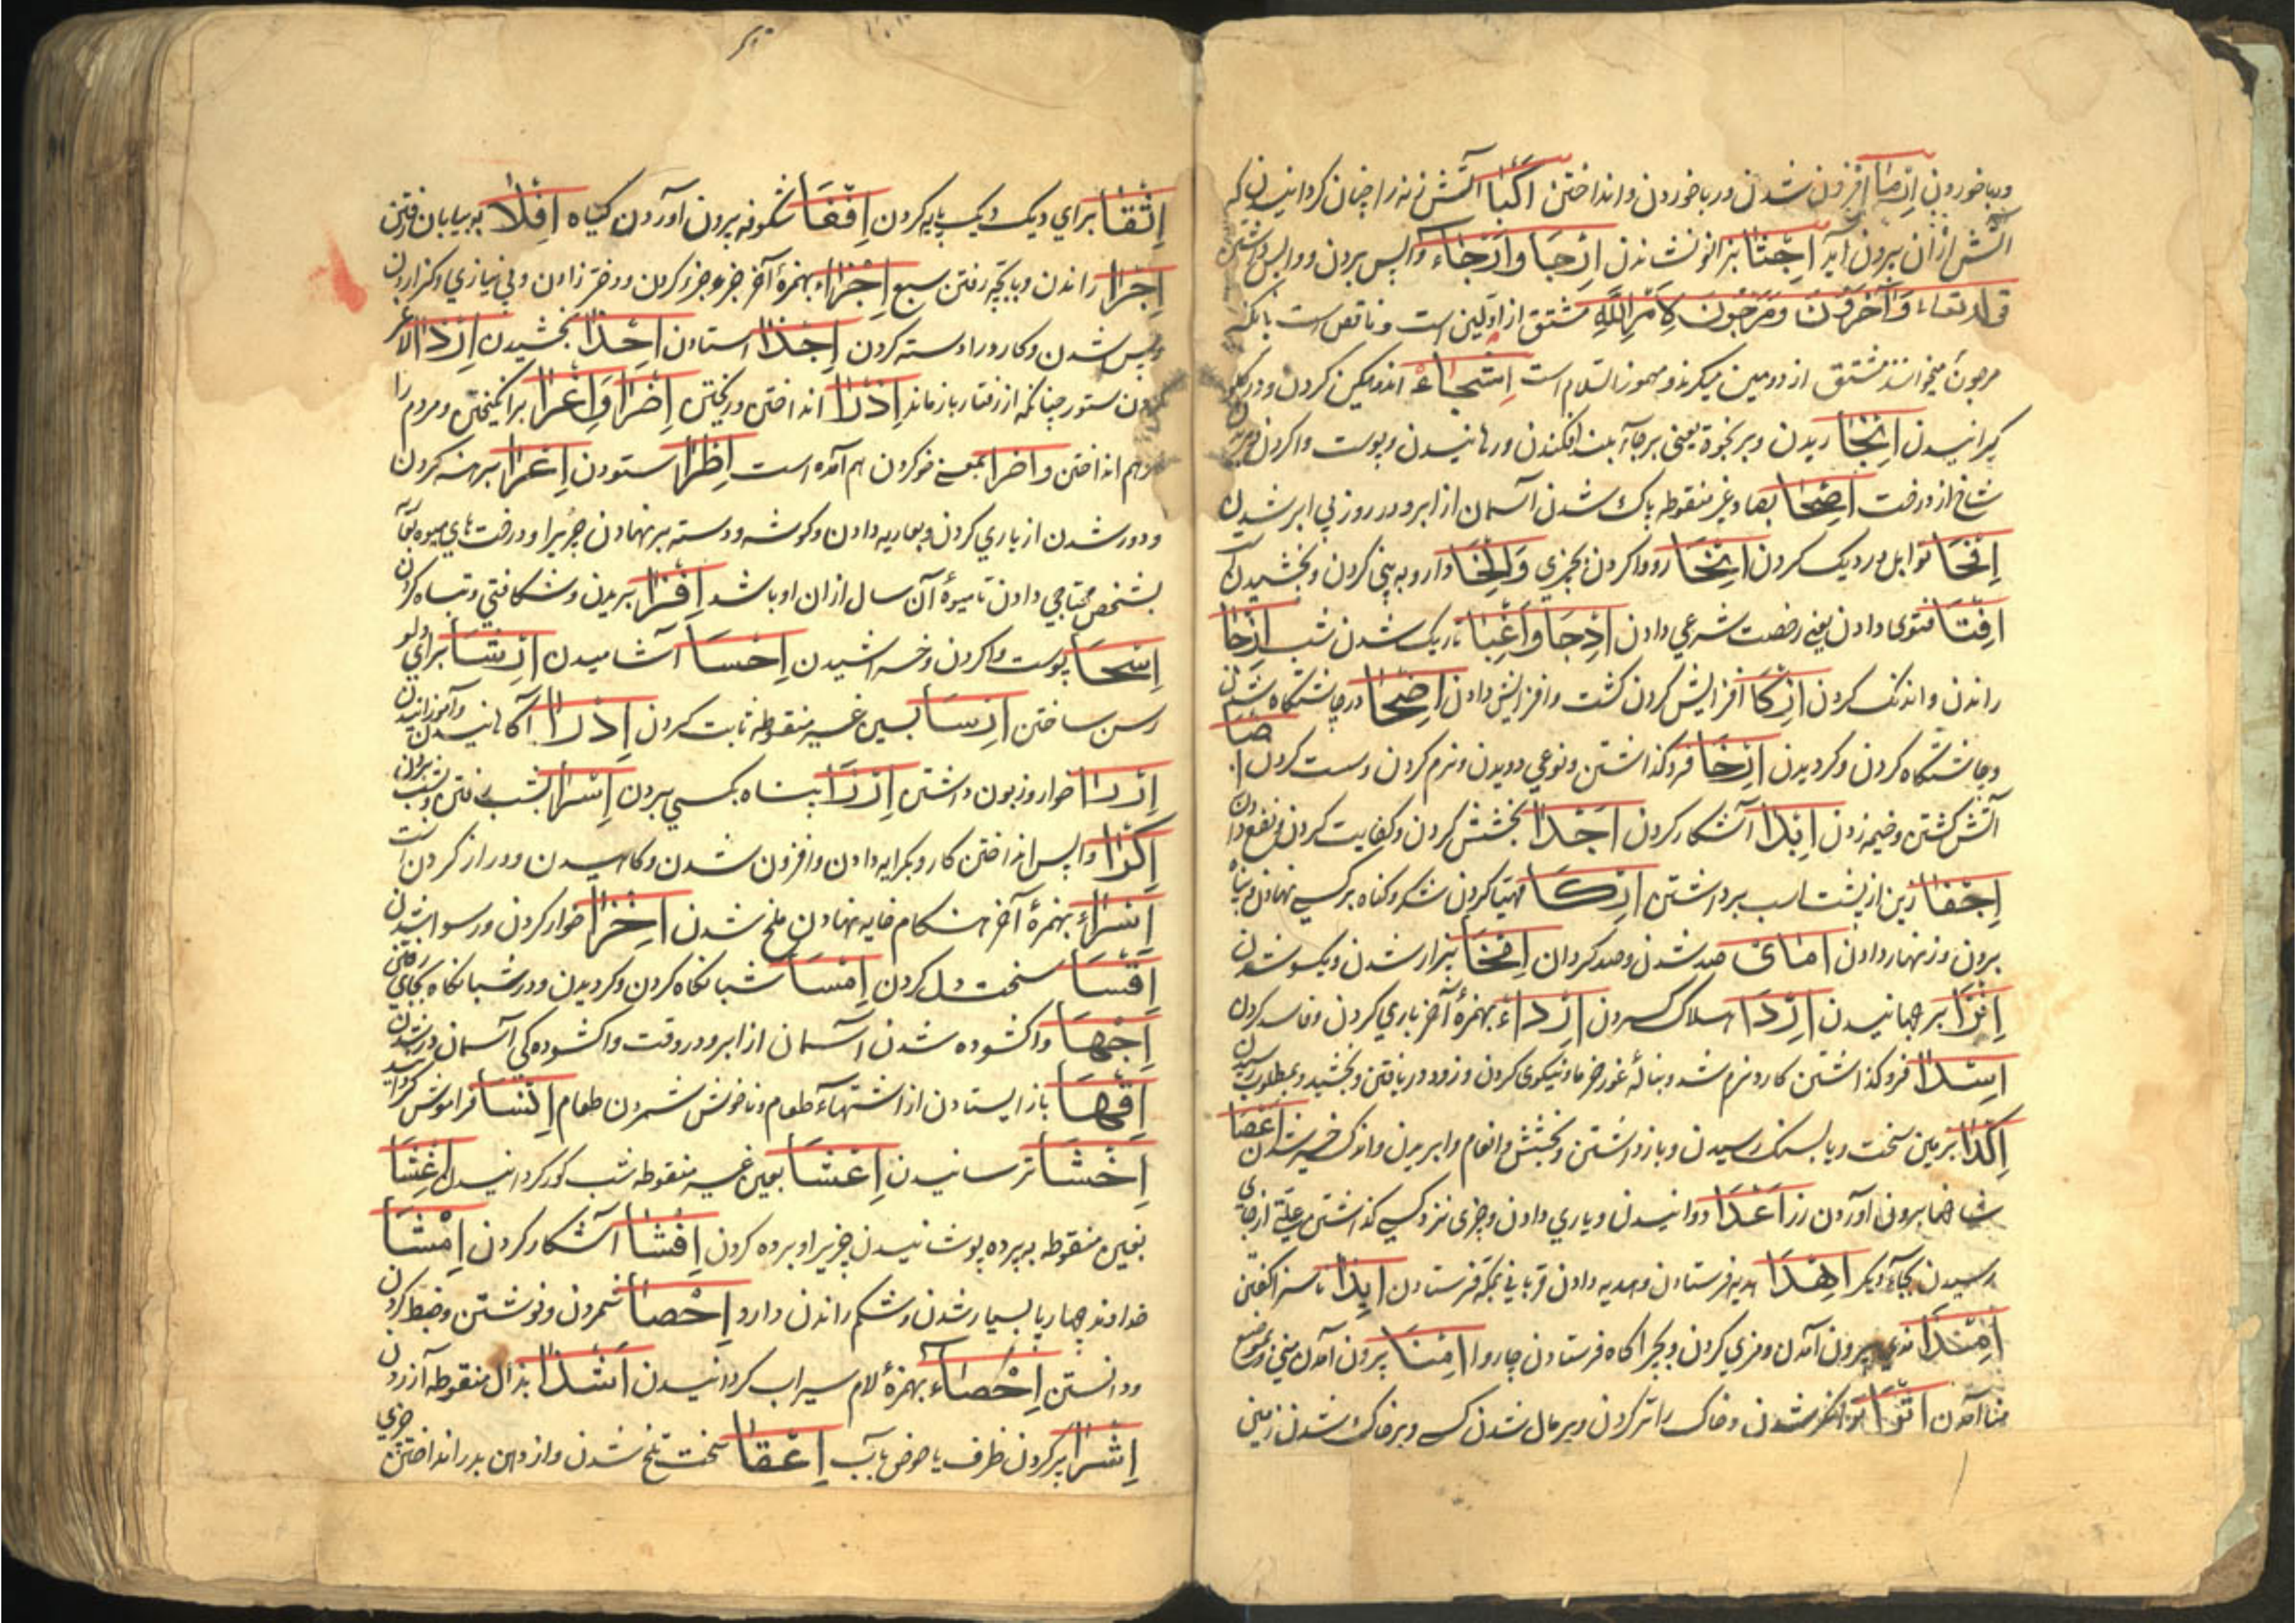 وربا خوردن اِرْمَا افزون شدن وربا خوردن و انداختن اِکْبَا آتش زنه را چنان گردانیدن که
آتش از آن بیرون آید اِجْثَا بزانو نشاندن اِرْجَا وَاَرْجَاء واپس بردن و واپس داشتن
قوله تعالی وَآخَرُونَ مُرْجَوْنَ لِاَمْرِ اللّٰهِ مشتق از اولین است و ناقص است بآنکه
مرجون میخوانند مشتق از دومین میگیرند و مهموز اللام است اِشْجَاء اندهگین کردن و در گلو
گیرانیدن اِنْجَا ریدن و بر نجوة یعنی بر جای بلند افکندن و رهانیدن و پوست وا کردن و بریدن
شاخ از درخت اِصْحَا بصاد غیر منقوطه پاک شدن آسمان از ابر و در روز بی ابر شدن
اِفْحَا توابل در دیک کردن اِنْحَا رو وا کردن بچیزی دارو به بینی کردن و بخشیدن
اِفْتَا فتوی دادن یعنی رخصت شرعی دادن اِدْجَا وَاِغْبَا تاریک شدن شب اِزْجَا
راندن و اندک کردن اِزْکَا افزایش کردن کشت و افزایش دادن اِضْحَا در چاشتگاه شدن
و چاشتگاه کردن و گردیدن اِرْخَا فرو گذاشتن و نوعی دویدن و نرم کردن و سست کردن
آتش کشتن و خیمه زدن اِبْدَا آشکار کردن اِجْدَا بخشش کردن و کفایت کردن و نفع دادن
اِجْفَا زین از پشت اسب برداشتن اِزْکَا مهیا کردن شکر و گناه بر کسی نهادن و پناه
بردن و زنهار دادن اِمَای صد شدن و صد گردان بیزار شدن و یکسو شدن
اِنْزَا بر جهانیدن اِرْدَا هلاک کردن اِرْدَاء بهمزهٔ آخر یاری کردن و فاسد کردن
اِسْدَا فرو گذاشتن کار و نرم شدن غوره خرما و نیکوی کردن و زود دریافتن و بخشید و بمطلوب رسیدن
اِکْدَا بزمین سخت و یا بسنگ رسیدن و باز داشتن و بخشش و انعام وا بریدن و اندک خیر شدن اِغْصَا
شاخها بیرون آوردن رز اِعْدَا دوانیدن و یاری دادن و چیزی نزد کسی گذاشتن و علتی از جای
رسیدن بجای دیگر اِهْدَا هدیه فرستادن و هدیه دادن قربانی بمکه فرستادن اِبْذَا ناسزا گفتن
اِمْذَا مذی بیرون آمدن و مزی کردن و بچراگاه فرستادن چاروا اِمْنَا بیرون آمدن منی و بموضع
منا آمدن اِثْرَا توانگر شدن و خاک را تر کردن و پر مال شدن کسی و پر خاک شدن زمین
اِثْفَا برای دیک دیک پایه کردن اِفْغَا شکوفه بیرون آوردن گیاه اِفْلَا به بیابان رفتن
اِجْرَا راندن و با بچه رفتن سبع اِجْزَاء بهمزهٔ آخر جزو جزو کردن و دختر زادن و بی نیازی و گزاردن
و پس شدن و کارد را دسته کردن اِجْذَا استادن اِحْذَا بخشیدن اِرْذَا لاغر
کردن ستور چنانکه از رفتار باز ماند اِذْرَا انداختن و ریختن اِضْرَا وَاِغْرَا بر انگیختن و مردم را
درهم انداختن و اِضْرَا بمعنی خو کردن هم آمده است اِطْرَا ستودن اِعْرَا برهنه کردن
و دور شدن از یاری کردن و بعاریه دادن و گوشه و دسته بر نهادن چیزیرا و درخت های میوه
بشخص محتاجی دادن تا میوهٔ آن سال از آن او باشد اِفْرَا بریدن و شکافتی و تباه کردن
اِسْحَا پوست وا کردن و خراشیدن اِحْسَا آشامیدن اِرْشَا برای دلو
رسن ساختن اِرْسَا بسین غیر منقوطه ثابت کردن اِدْرَا آگاهانیدن و آموزانیدن
اِزْرَا خوار و زبون داشتن اِذْرَا بپناه کسی بردن اِسْرَا بشب رفتن و بشب بردن
اِکْرَا واپس انداختن کار و بکرایه دادن و افزون شدن و کاهیدن و دراز کردن است
اِسْرَاء بهمزهٔ آخر هنگام خایه نهادن ملخ شدن اِخْزَا خوار کردن و رسوا شدن
اِقْسَا سخت دل کردن اِمْسَا شبانگاه کردن و گردیدن و در شبانگاه بجای رفتن
اِجْهَا وا گشوده شدن آسمان از ابر و در وقت وا گشوده گی آسمان در شدن
اِقْهَا باز ایستادن از اشتهای طعام و ناخوش شمردن طعام اِنْسَا فراموش گردانید
اِخْشَا ترسانیدن اِعْشَا بعین غیر منقوطه شب کور گردانیدن اِغْشَا
بغین منقوطه به پرده پوشانیدن چیزیرا و پرده کردن اِفْشَا آشکار کردن اِمْشَا
خداوند چهار پا بسیار شدن و شکم راندن دارو اِحْصَا شمردن و نوشتن و ضبط کردن
و دانستن اِحْصَاء بهمزهٔ لام سیراب گردانیدن اِشْذَا بذال منقوطه آزردن
اِشْرَا پر کردن ظرف یا حوض بآب اِعْقَا سخت تلخ شدن و از دهن بدر انداختن چیزی